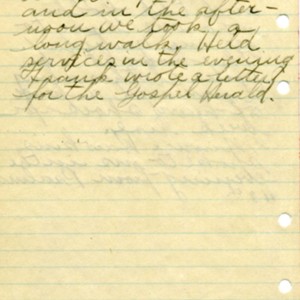 and in the after-
noon we took a
long walk. Held
services in the evening
Frank wrote a letter
for the Gospel Herald.